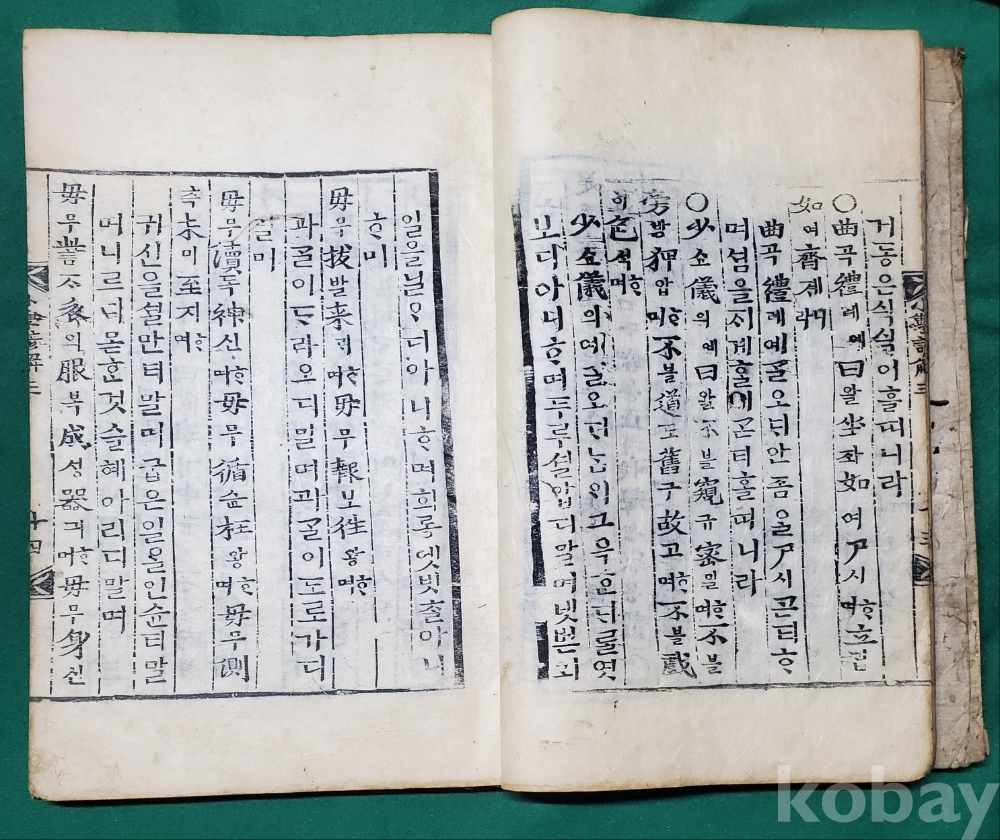 거동은식싁이홀띠니라
○曲곡禮례예曰왈坐좌如여尸시ᄒᆞ며立립
如여齊ᄌᆡ니라
曲곡禮례예ᄀᆞᆯ오ᄃᆡ안좀을尸시ᄀᆞᆮ티ᄒᆞ
며셤을ᄌᆡ계홀이ᄀᆞᆮ티홀띠니라
○少쇼儀의예曰왈不블窺규密밀ᄒᆞ며不블
旁방狎압ᄒᆞ며不블道도舊구故고ᄒᆞ며不블戱
희色ᄉᆡᆨᄒᆞ며
少쇼儀의예ᄀᆞᆯ오ᄃᆡ ᄂᆞᆷ의그윽ᄒᆞᆫᄃᆡᄅᆞᆯ엿
보디아니ᄒᆞ며두루셜압디말며녯벋의
小學諺解三
十三
일을닐ᄋᆞ디아니ᄒᆞ며희롱엣빗츨아니
ᄒᆞ며
毋무拔발来ᄅᆡᄒᆞ며毋무報보往왕ᄒᆞ며
과ᄀᆞᆯ이ᄃᆞ라오디말며과ᄀᆞᆯ이도로가디
말며
毋무瀆독神신ᄒᆞ며毋무循슌枉왕ᄒᆞ며毋무測
측未미至지ᄒᆞ며
귀신을셜만티말며굽은일을인슌티말
며니르디몯ᄒᆞᆫ것슬혜아리디말며
毋무訾ᄌᆞ衣의服복成셩器긔ᄒᆞ며毋무身신
小學諺解三
十四
kobay